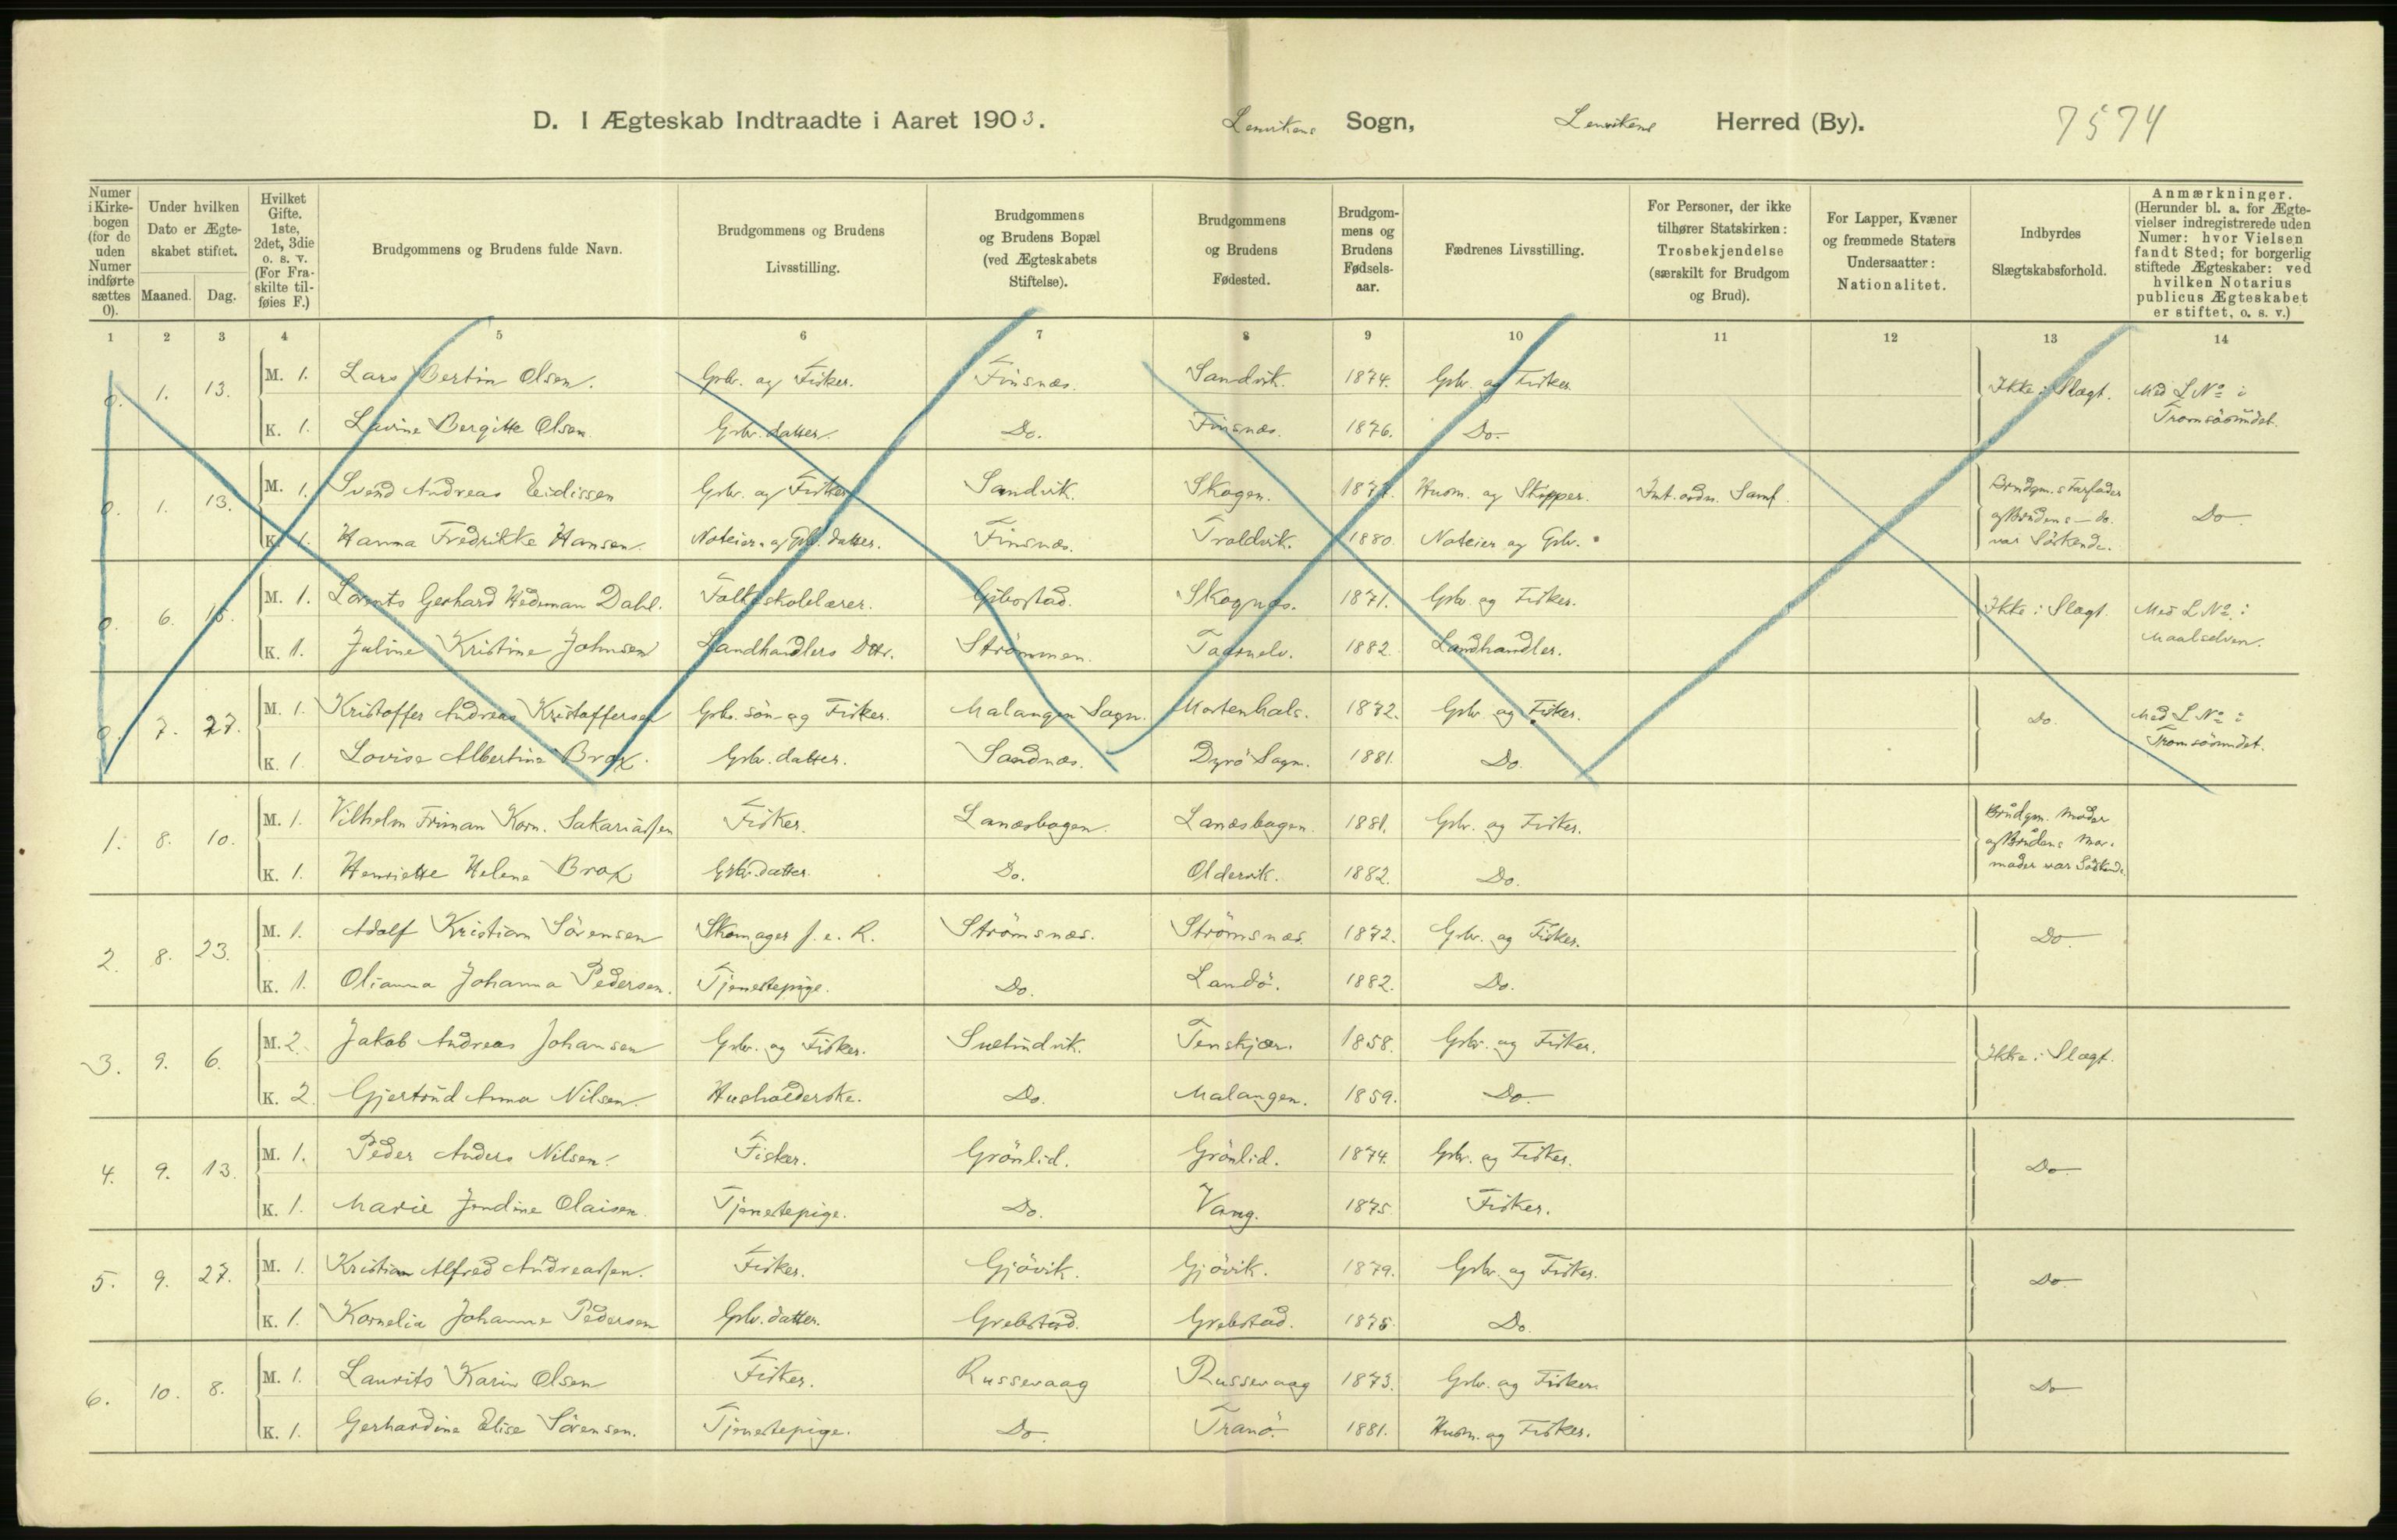 D. I Ægteskab Indtraadte i Aaret 1903. Lenvikens Sogn, Lenvikens Herred (By). 7574
Numer i Kirkebogen (for de uden Numer indførte sættes 0). | Under hvilken Dato er Ægteskabet stiftet. Maaned. Dag. | Hvilket Gifte. 1ste, 2det, 3die o. s. v. (For Fraskilte tilføies F.) | Brudgommens og Brudens fulde Navn. | Brudgommens og Brudens Livsstilling. | Brudgommens og Brudens Bopæl (ved Ægteskabets Stiftelse). | Brudgommens og Brudens Fødested. | Brudgommens og Brudens Fødselsaar. | Fædrenes Livsstilling. | For Personer, der ikke tilhører Statskirken: Trosbekjendelse (særskilt for Brudgom og Brud). | For Lapper, Kvæner og fremmede Staters Undersaatter: Nationalitet. | Indbyrdes Slægtskabsforhold. | Anmærkninger. (Herunder bl. a. for Ægtevielser indregistrerede uden Numer: hvor Vielsen fandt Sted; for borgerlig stiftede Ægteskaber: ved hvilken Notarius publicus Ægteskabet er stiftet, o. s. v.)
1 2 3 4 5 6 7 8 9 10 11 12 13 14
0. 1. 13. M. 1. Lars Bertin Olsen. Grbr. og Fisker. Finsnæs. Sandvik. 1874. Grbr. og Fisker Ikke i Slægt. Med L No i Tromsösundet.
K. 1. Lavine Bergitte Olsen Grbr. datter. Do. Finsnæs. 1876. Do.
0. 1. 13. M. 1. Svend Andreas Eidissen Grbr. og Fisker Sandvik. Skogen. 1877. Husm. og Skipper. Int. ordn. Samf. Brudgm.s Farfader og Brudens - do. var Söskende. Do.
K. 1. Hanna Fredrikke Hansen. Noteier. og Grb. datter. Finsnæs. Troldvik. 1880. Noteier og Grbr.
0. 6. 15. M. 1. Lorents Gerhard Wedeman Dahl. Folkeskolelærer. Gibostad. Skognæs. 1871. Grbr. og Fisker. Ikke i Slægt. Med L No i Maalselven.
K. 1. Juline Kristine Johnsen Landhandlers Dtr. Strömmen. Taarnelv. 1882. Landhandler.
0. 7. 27. M. 1. Kristoffer Andreas Kristoffersen Grbr. sön og Fisker. Malangen Sogn. Mortenhals. 1872. Grbr og Fisker. Do. Med L No i Tromsösundet.
K. 1. Lovise Albertine Brox. Grbr. datter. Sandnæs. Dyrö Sogn. 1881. Do.
1. 8. 10. M. 1. Vilhelm Friman Korn. Sakariassen Fisker. Lanæsbogen. Lanæsbogen. 1881. Grbr. og Fisker. Brudgm. Moder og Brudens Mormoder var Söskende
K. 1. Henriette Helene Brox Grbr. datter. Do. Oldervik. 1882. Do.
2. 8. 23. M. 1. Adolf Kristian Sörensen Skomager f. e. R. Strömsnæs. Strömsnæs. 1872. Grbr. og Fisker. Do.
K. 1. Olianna Johanna Pedersen. Tjenestepige. Do. Landö. 1882. Do.
3. 9. 6. M. 2. Jakob Andreas Johansen Grbr. og Fisker. Sultindvik. Tenskjær. 1858. Grbr. og Fisker. Ikke i Slægt.
K. 2. Gjertrud Anna Nilsen. Husholderske. Do. Malangen. 1859. Do.
4. 9. 13. M. 1. Peder Anders Nilsen. Fisker. Grönlid. Grönlid. 1874. Grbr. og Fisker. Do.
K. 1. Marie Jendine Olaisen. Tjenestepige. Do. Vang. 1875. Fisker.
5. 9. 27. M. 1. Kristian Alfred Andreassen. Fisker. Gjövik. Gjövik. 1879. Grbr. og Fisker. Do.
K. 1. Kornelia Johanne Pedersen Grbr. datter. Grebstad. Grebstad. 1875. Do.
6. 10. 8. M. 1. Laurits Karin Olsen Fisker. Russevaag Russevaag 1873. Grbr. og Fisker. Do
K. 1. Gerhardine Elise Sörensen. Tjenestepige. Do. Tranö. 1881. Husm. og Fisker.